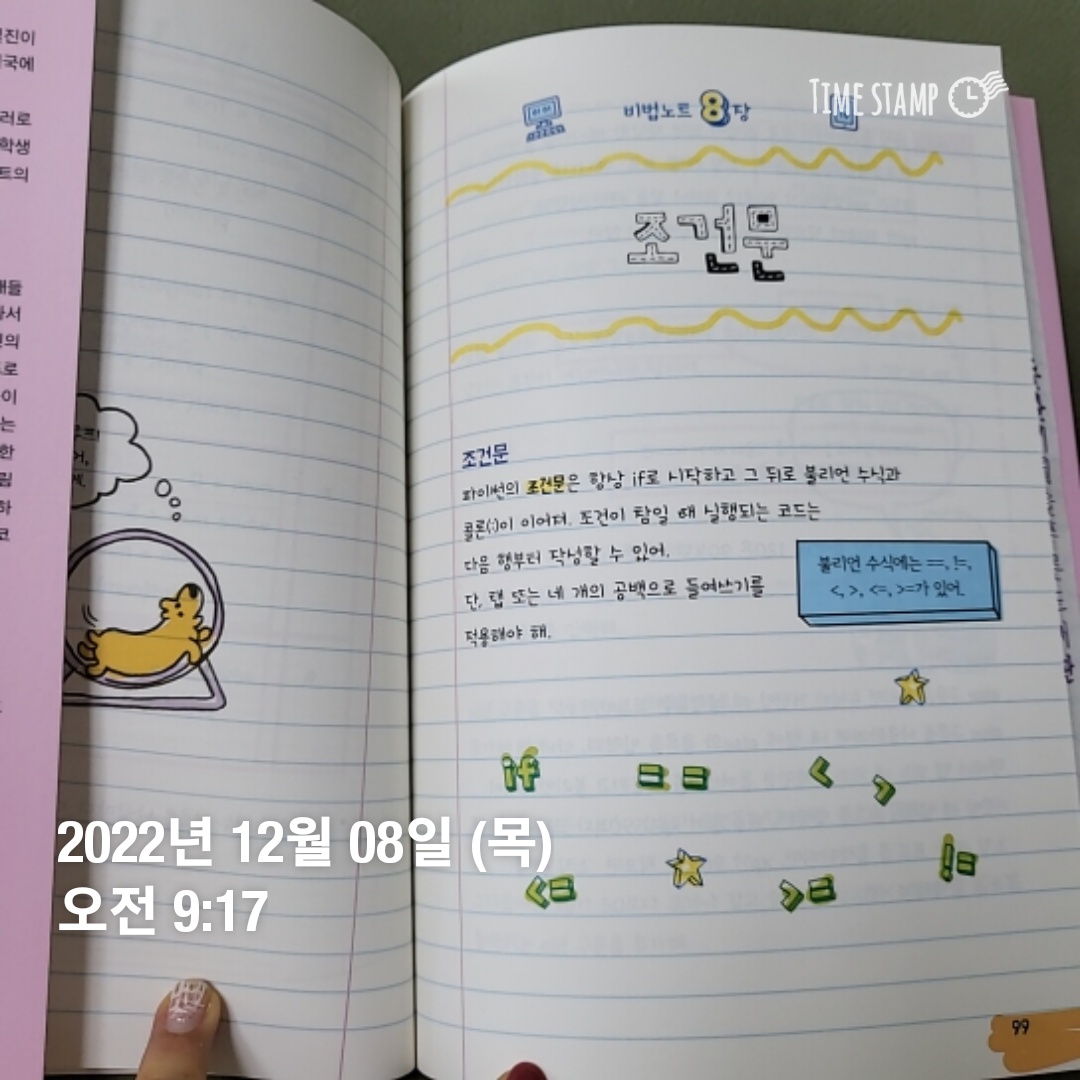 진이
국에
러로
학생
트의
서
의
로
이
는
한
림
하
코
TIME STAMP
비법노트 8장
조건문
조건문
파이썬의 조건문은 항상 if로 시작하고 그 뒤로 불리언 수식과
콜론(:)이 이어져. 조건이 참일 때 실행되는 코드는
다음 행부터 작성할 수 있어.
단, 탭 또는 네 개의 공백으로 들여쓰기를
적용해야 해.
불리언 수식에는 ==, !=,
<, >, <=, >=가 있어.
if == < >
<= >= !=
2022년 12월 08일 (목)
오전 9:17
99